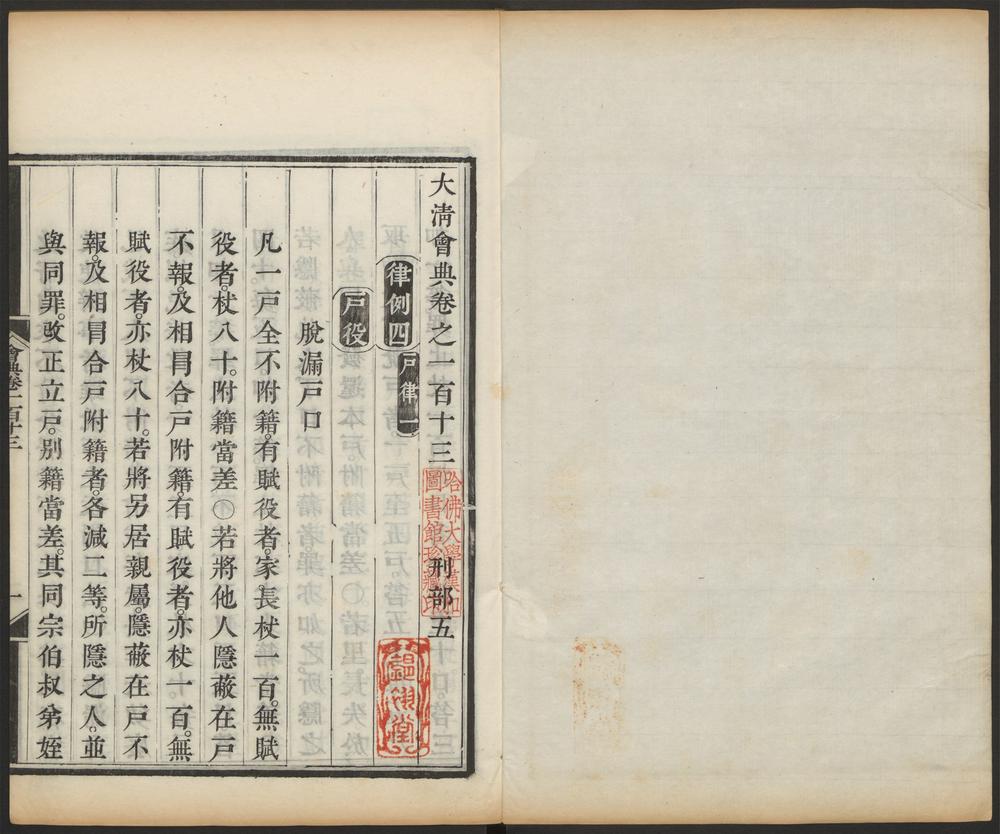 大淸會典卷之一百十三 刑部五
律例四 戸律一
戸役
脫漏戸口
凡一戸全不附籍。有賦役者。家長杖一百。無賦
役者。杖八十。附籍當差〇若將他人隱蔽在戸
不報。及相冒合戸附籍。有賦役者。亦杖一百。無
賦役者。亦杖八十。若將另居親屬。隱蔽在戸不
報。及相冒合戸附籍者。各減二等。所隱之人。並
與同罪。改正立戸。別籍當差。其同宗伯叔弟姪
會典卷一百十三
一
哈佛大學漢和
圖書館珍藏印